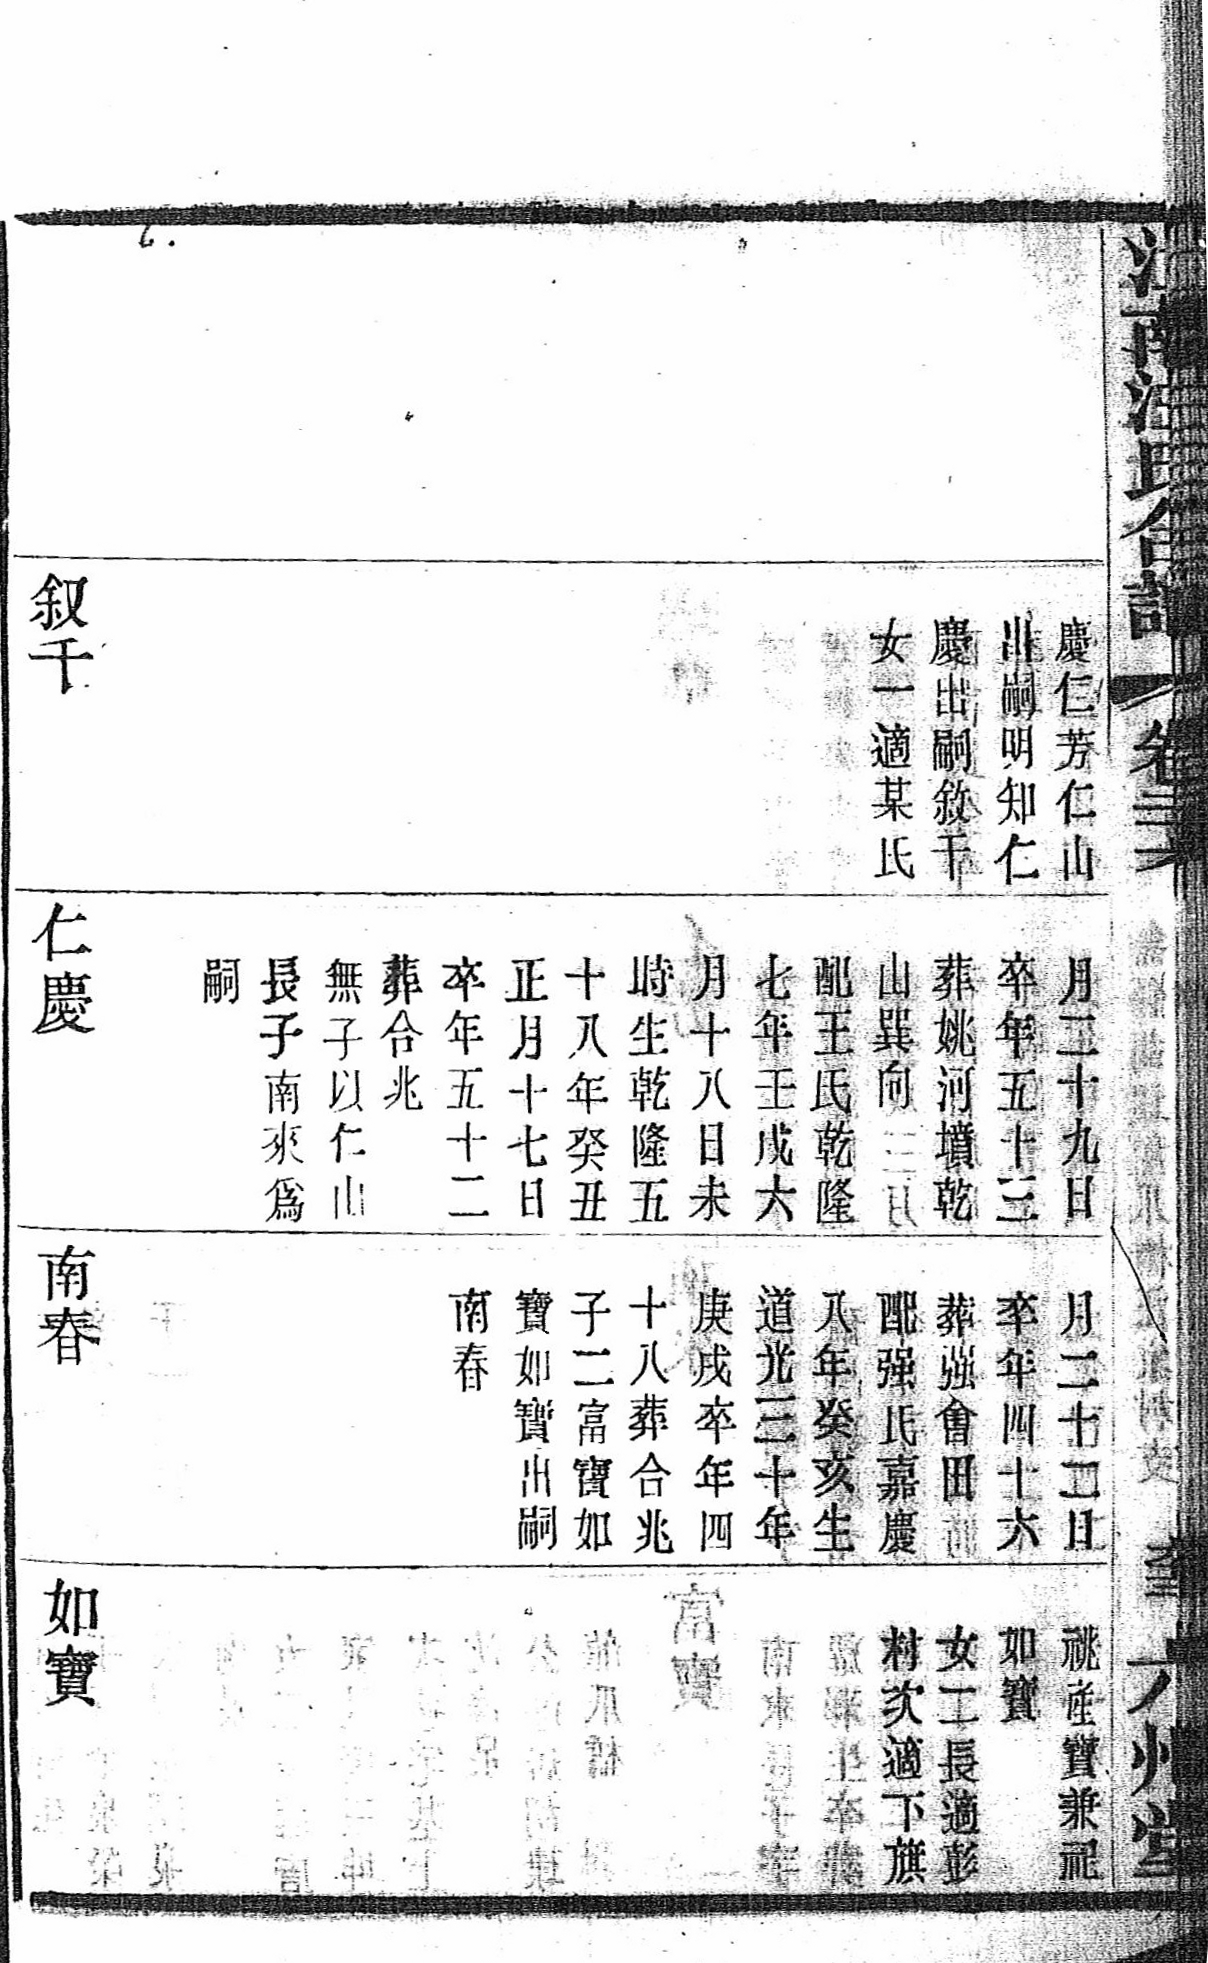 江南汪氏合譜
卷三六
六州堂
慶仁芳仁山
出嗣明知仁
慶出嗣敘千
女一適某氏
叙千
月二十九日
卒年五十三
葬姚河墳乾
山巽向
配王氏乾隆
七年壬戌六
月十八日未
時生乾隆五
十八年癸丑
正月十七日
卒年五十二
葬合兆
無子以仁山
長子南來爲
嗣
仁慶
月二十二日
卒年四十六
葬强會田
配强氏嘉慶
八年癸亥生
道光三十年
庚戌卒年四
十八葬合兆
子二富寶如
寶如寶出嗣
南春
南春
祧産寶兼祀
如寶
女二長適彭
村次適下旗
如寶